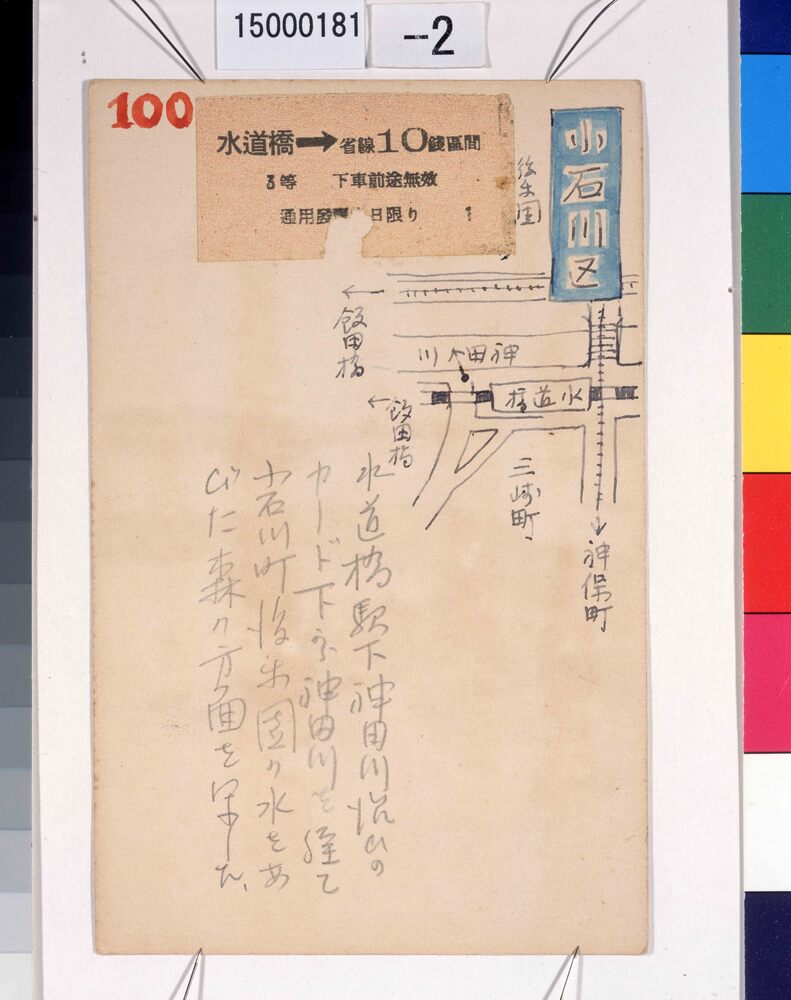 15000181
-2
100
水道橋➡省線10錢區間
3等 下車前途無效
通用發賣当日限り 1
小石川区
後楽園
←飯田橋
神田川
←飯田橋
水道橋
三崎町
↓神保町
水道橋駅下神田川沿ひの
ガード下から神田川を経て
小石川町後楽園の水をあ
びた森の方面を